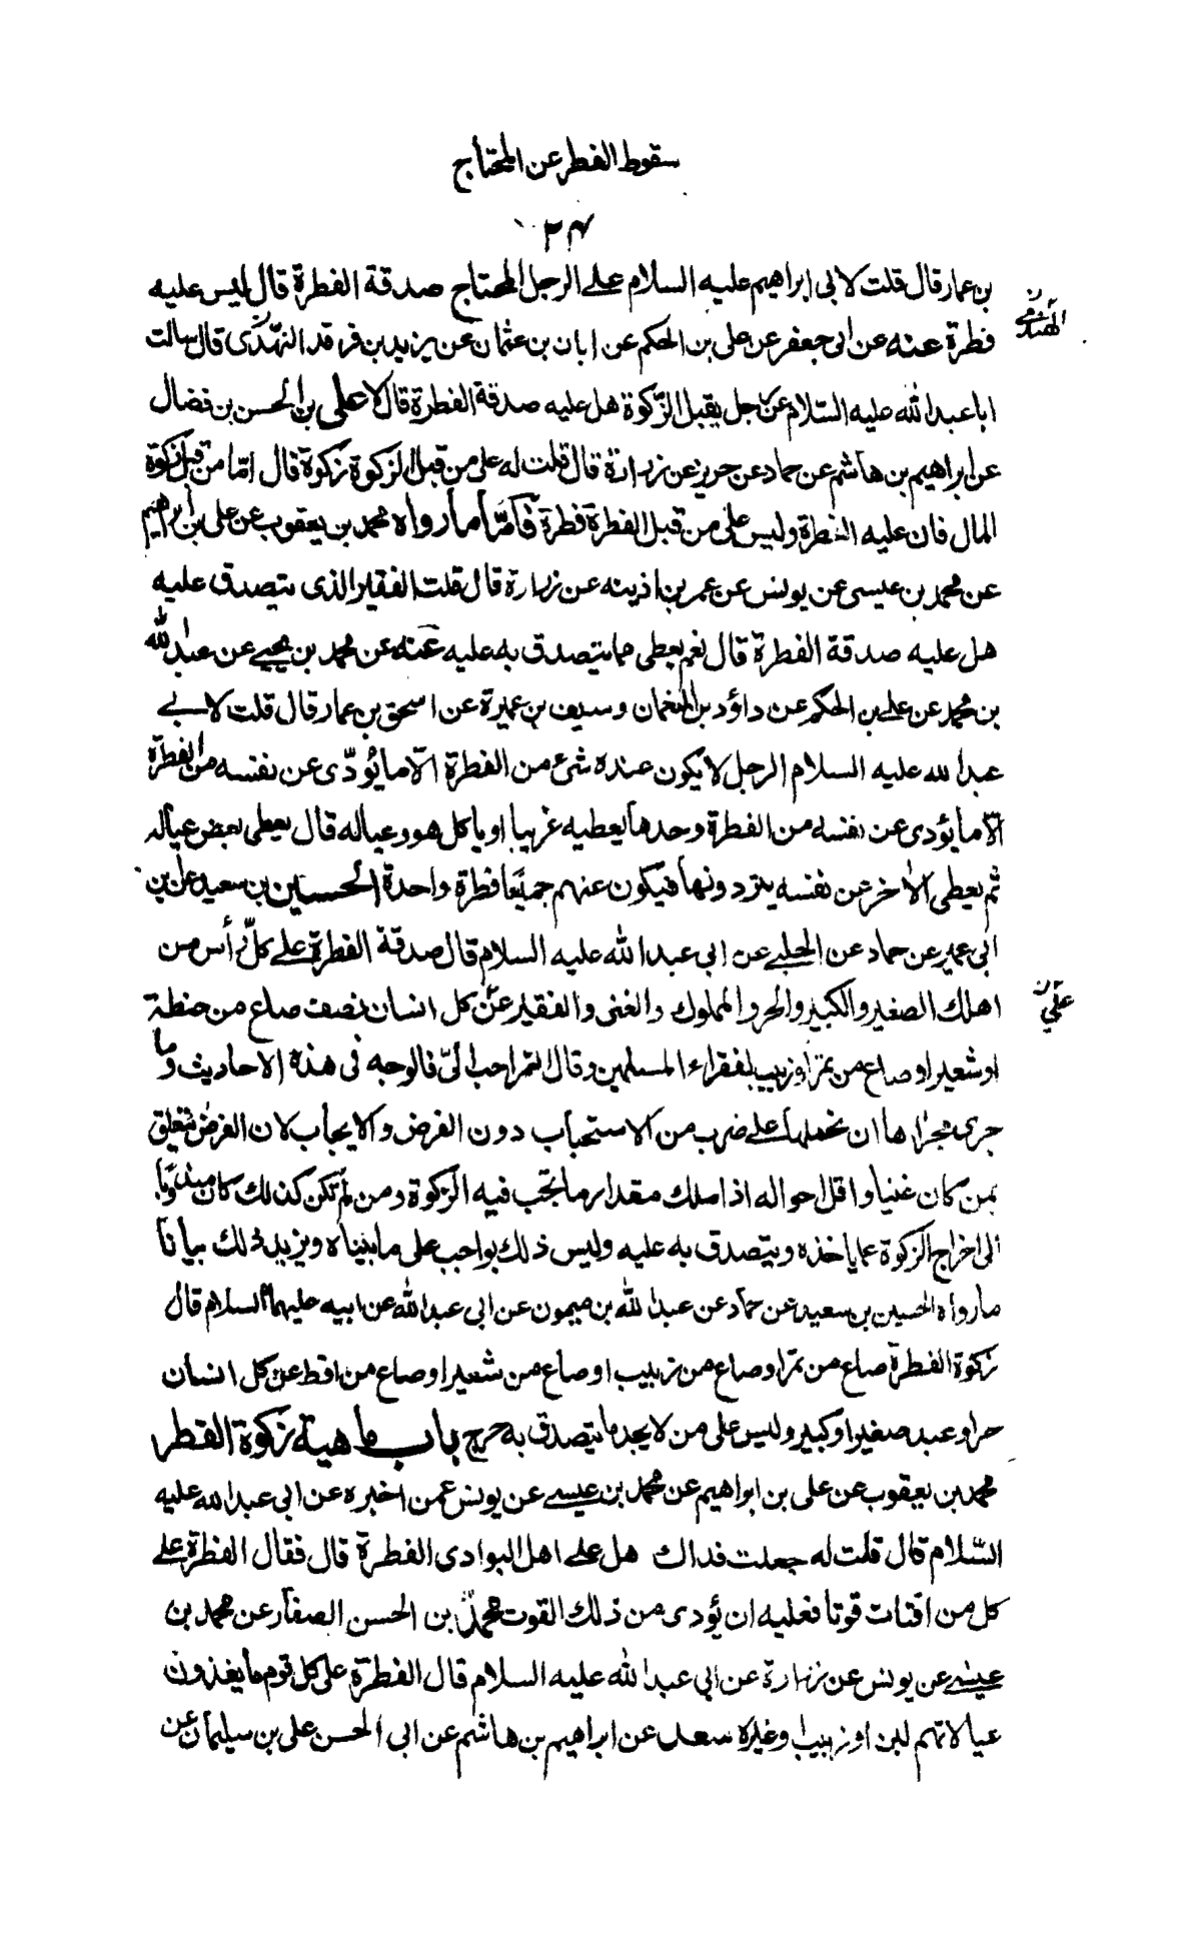 سقوط الفطر عن المحتاج
٢٤
بن عمار قال قلت لابى ابراهيم عليه السلام على الرجل المحتاج صدقة الفطرة قال ليس عليه
فطرة عنه عن ابى جعفر عن على بن الحكم عن ابان بن عثمان عن يزيد بن فرقد النهدى قال سالت
ابا عبد الله عليه السلام عن رجل يقبل الزكوة هل عليه صدقة الفطرة قال لا على بن الحسن بن فضال
عن ابراهيم بن هاشم عن حماد عن حريز عن زرارة قال قلت له على من قبل الزكوة زكوة قال اما من قبل زكوة
المال فان عليه الفطرة وليس على من قبل الفطرة فطرة فاما ما رواه محمد بن يعقوب عن على بن ابراهيم
عن محمد بن عيسى عن يونس عن عمر بن اذينه عن زرارة قال قلت الفقير الذى يتصدق عليه
هل عليه صدقة الفطرة قال نعم يعطى مما يتصدق به عليه عنه عن محمد بن يحيى عن عبد الله
بن محمد عن على بن الحكم عن داؤد بن النعمان وسيف بن عميرة عن اسحق بن عمار قال قلت لابى
عبد الله عليه السلام الرجل لا يكون عنده شئ من الفطرة الا ما يؤدى عن نفسه من الفطرة
الا ما يؤدى عن نفسه من الفطرة وحدها يعطيه غريبا او ياكل هو وعياله قال يعطى بعض عياله
ثم يعطى الاخر عن نفسه يترددونها فيكون عنهم جميعا فطرة واحدة الحسين بن سعيد عن بن
ابى عمير عن حماد عن الحلبى عن ابى عبد الله عليه السلام قال صدقة الفطرة على كل رأس من
اهلك الصغير والكبير والحر والمملوك والغنى والفقير عن كل انسان نصف صاع من حنطة
او شعير او صاع من تمر او زبيب لفقراء المسلمين وقال التمر احب الى فالوجه فى هذه الاحاديث وما
جرى مجراها ان نحملها على ضرب من الاستحباب دون الفرض والايجاب لان الفرض يتعلق
بمن كان غنيا واقل احواله اذا ملك مقدار ما تجب فيه الزكوة ومن لم تكن كذلك كان مندوبا
الى اخراج الزكوة عما ياخذه ويتصدق به عليه وليس ذلك بواجب على ما بيناه ويزيد ذلك بيانا
ما رواه الحسين بن سعيد عن حماد عن عبد الله بن ميمون عن ابى عبد الله عن ابيه عليهما السلام قال
زكوة الفطرة صاع من تمر او صاع من زبيب او صاع من شعير او صاع من اقط عن كل انسان
حر او عبد صغير او كبير وليس على من لا يجد ما يتصدق به حرج باب ماهية زكوة الفطر
محمد بن يعقوب عن على بن ابراهيم عن محمد بن عيسى عن يونس عمن اخبره عن ابى عبد الله عليه
السلام قال قلت له جعلت فداك هل على اهل البوادى الفطرة قال فقال الفطرة على
كل من اقتات قوتا فعليه ان يؤدى من ذلك القوت محمد بن الحسن الصفار عن محمد بن
عيسى عن يونس عن زرارة عن ابى عبد الله عليه السلام قال الفطرة على كل قوم ما يغذون
عيالاتهم لبن او زبيب او غيره سعد عن ابراهيم بن هاشم عن ابى الحسن على بن سليمان عن
على